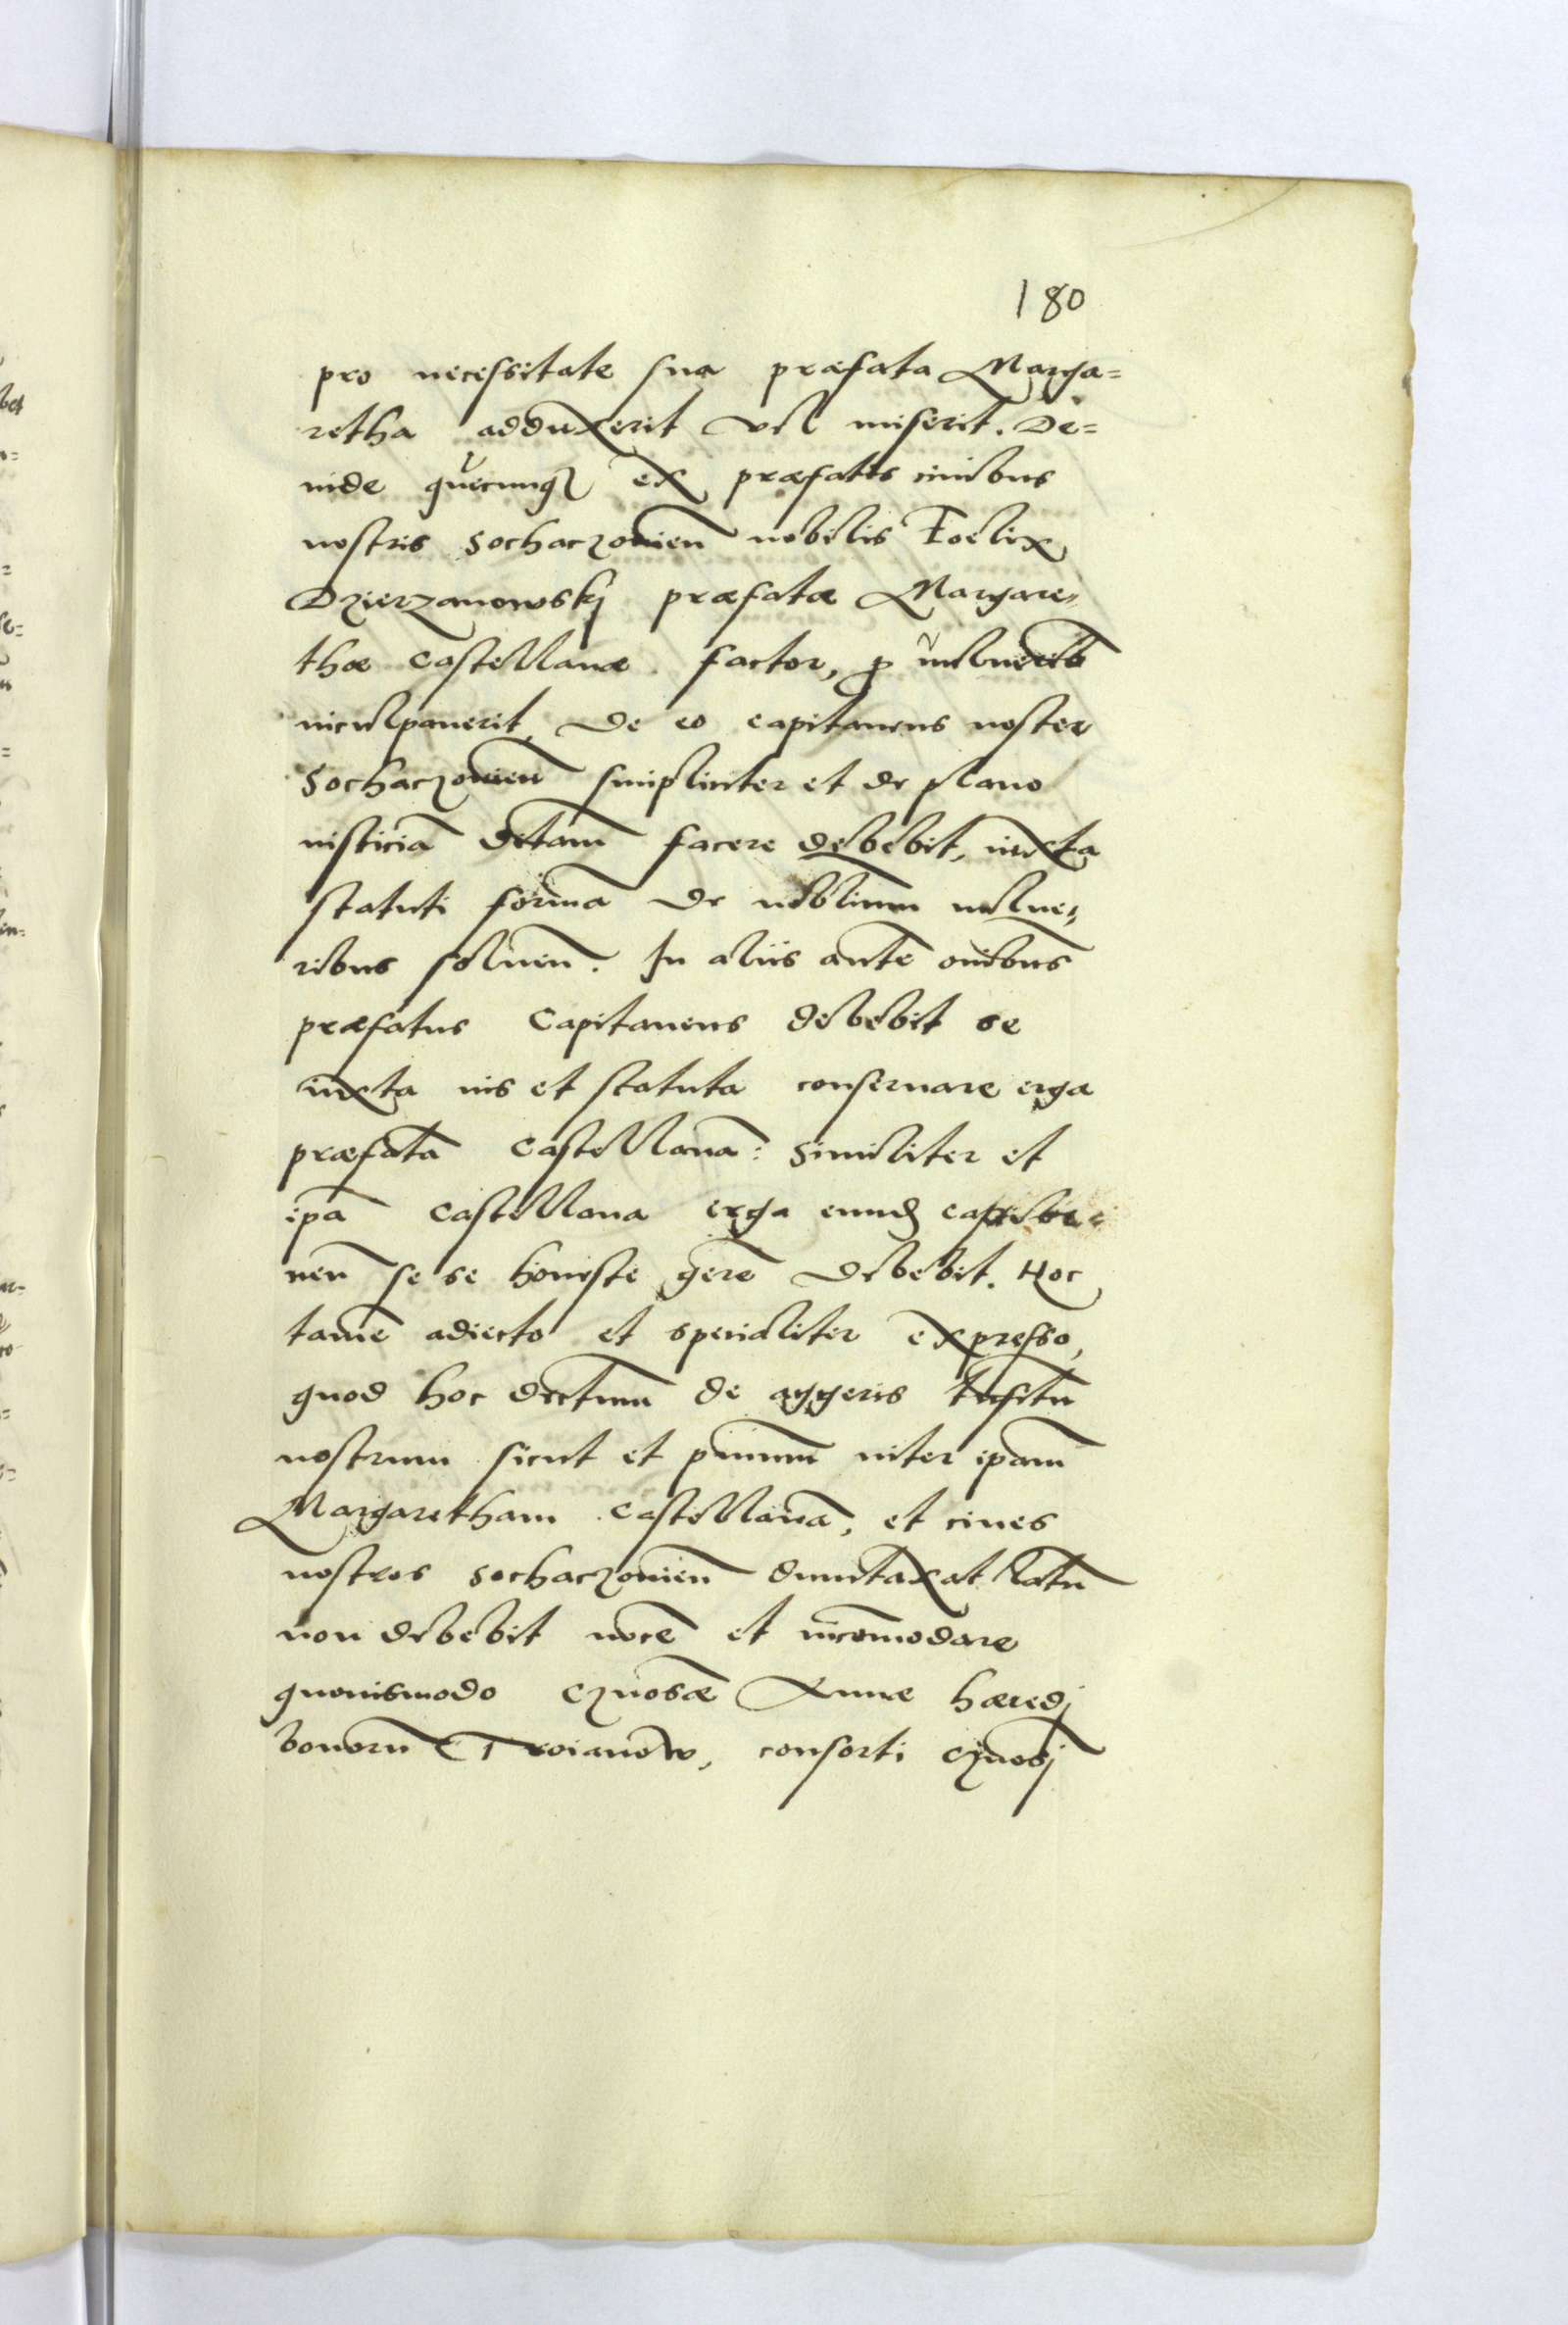 180
pro necessitate sua præfata Marga=
retha adduxerit vel miserit. De=
inde quecunq ex præfatis ciuibus
nostris Sochaczouien̄ nobilis Foelix
Dzierzanowskj præfatæ Margare,
thæ Castellanæ factor, p uulnerib
inculpauerit, de eo capitaneus noster
Sochaczouien̄ simpliciter et de plano
iusticiā debitam facere debebit, iuxta
statuti formā de nobilium uulne,
ribus soluen̄. In aliis autē om̄ibus
præfatus Capitaneus debebit se
iuxta ius et statuta conseruare erga
præfatā Castellanā: Similiter et
ipā Castellana erga eund
neū se se honeste gerē debebit. Hoc
tamē adiecto et specialiter expresso,
quod hoc decretum de aggeris
nostrum sicut et primum inter ipam
Margaretham Castellanā, et ciues
nostros Sochaczouien̄ duntaxat latū
non debebit nocē et incōmodare
quouismodo Gnosæ Annæ hæredj
bonorū Troianow, consorti Gnosj